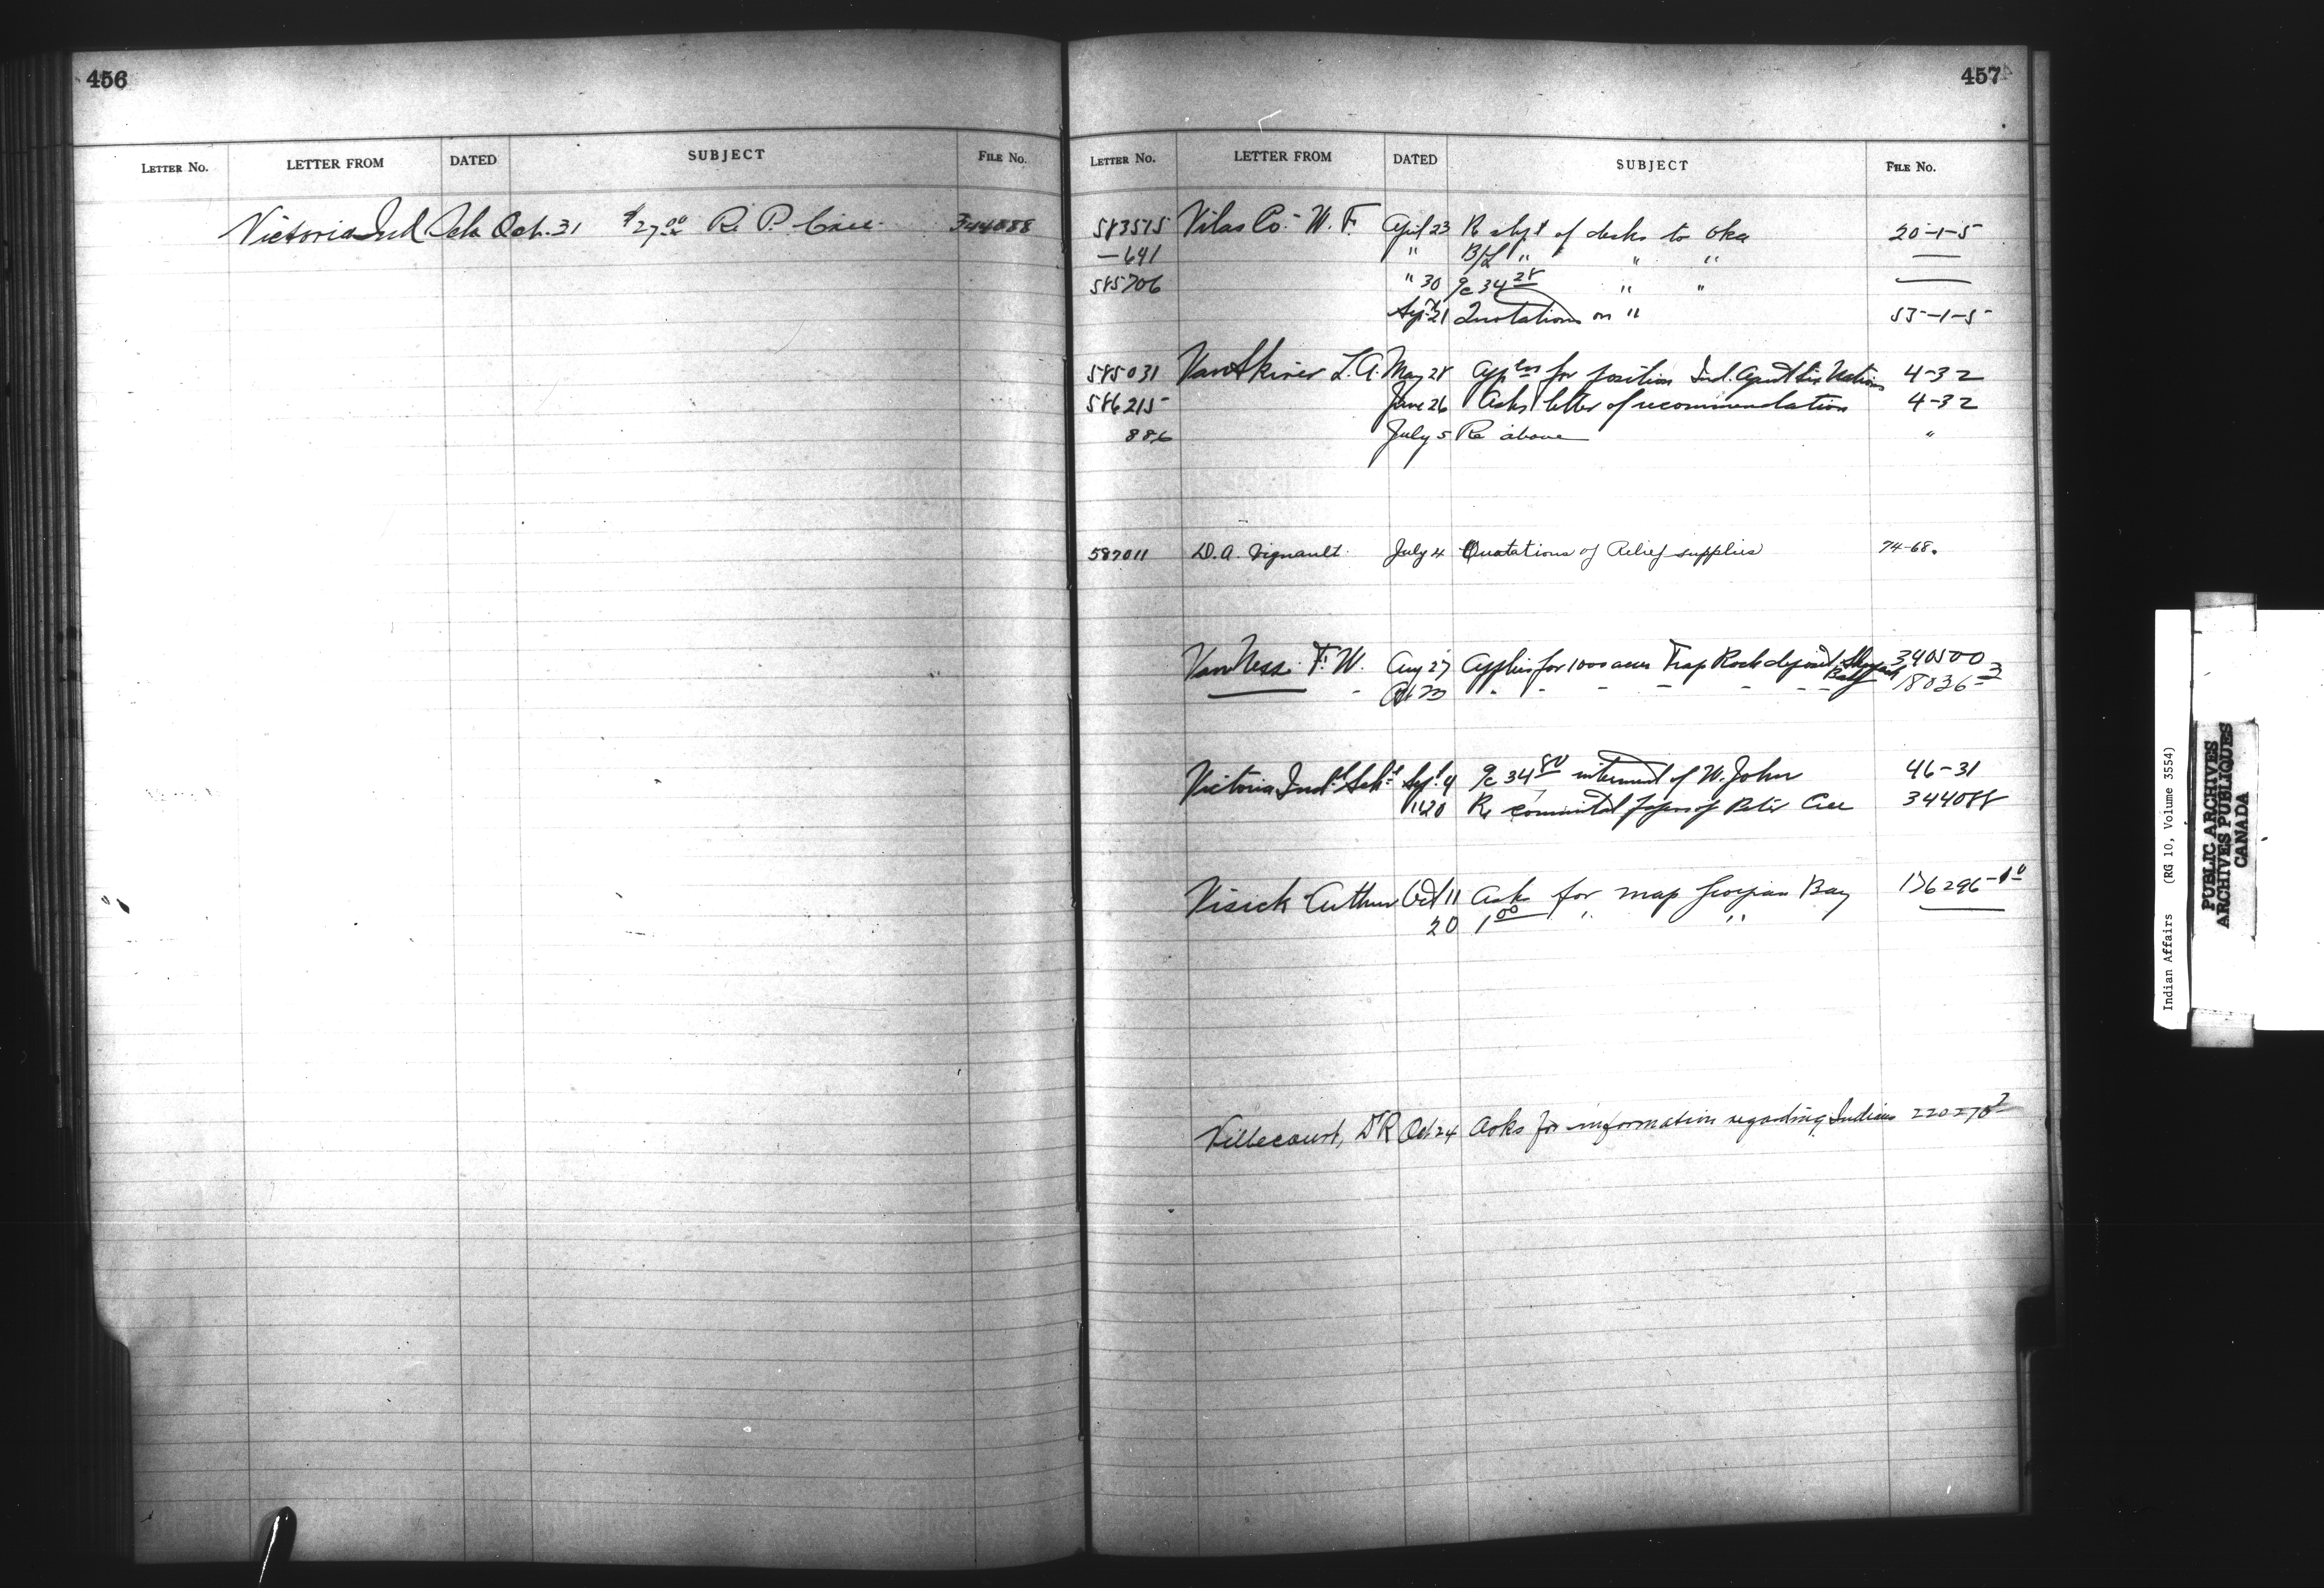 456
LETTER NO. LETTER FROM DATED SUBJECT FILE NO.
Victoria Ind Sch Oct. 31 $27.00 Re P. Cree 344088
457
LETTER NO. LETTER FROM DATED SUBJECT FILE NO.
583575 Vilas Co. W. F. April 23 Re shpt of desks to Oka 20-1-5
—641 " B/L " " " —
585706 " 30 a/c 34 28 " " —
Sept 21 Quotations on " 53-1-5
585031 Van Skiver L. A. May 28 Appln for position Ind. Agent Six Nations 4-32
586215 June 26 Asks letter of recommendation 4-32
886 July 5 Re above "
587011 D. A. Vignault July 4 Quotations of Relief supplies 74-68.
Van Ness F. W. Aug 27 Applies for 1000 acres Trap Rock deposit Bay 340500
Oct 23 " - - - - - - 18036-3
Victoria Indl Schl Sept. 4 a/c 34 80 interment of W. John 46-31
" 20 Re committal papers of Peter Cree 344088
Visick Arthur Oct 11 Asks for map Georgian Bay 176296-1
20 1 00 " "
Villecourt, D R Oct 24 Asks for information regarding Indians 220270
Indian Affairs (RG 10, Volume 3554)
PUBLIC ARCHIVES
ARCHIVES PUBLIQUES
CANADA